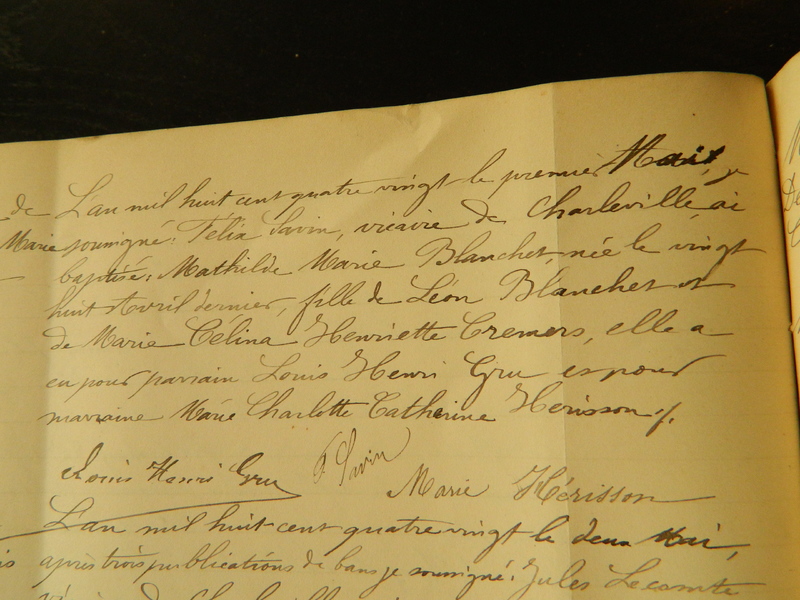 de L'an mil huit cent quatre vingt le premier Mai, je
Marie soussigné: Félix Savin, vicaire de Charleville, ai
baptisé: Mathilde Marie Blanchet, née le vingt
huit Avril dernier, fille de Léon Blanchet et
de Marie Celina Henriette Cremers, elle a
eu pour parrain Louis Henri Gru et pour
marraine Marie Charlotte Catherine Herisson
Louis Henri Gru F. Savin
Marie Hérisson
L'an mil huit-cent quatre vingt le deux Mai,
après trois publications de bans je soussigné: Jules Lecomte